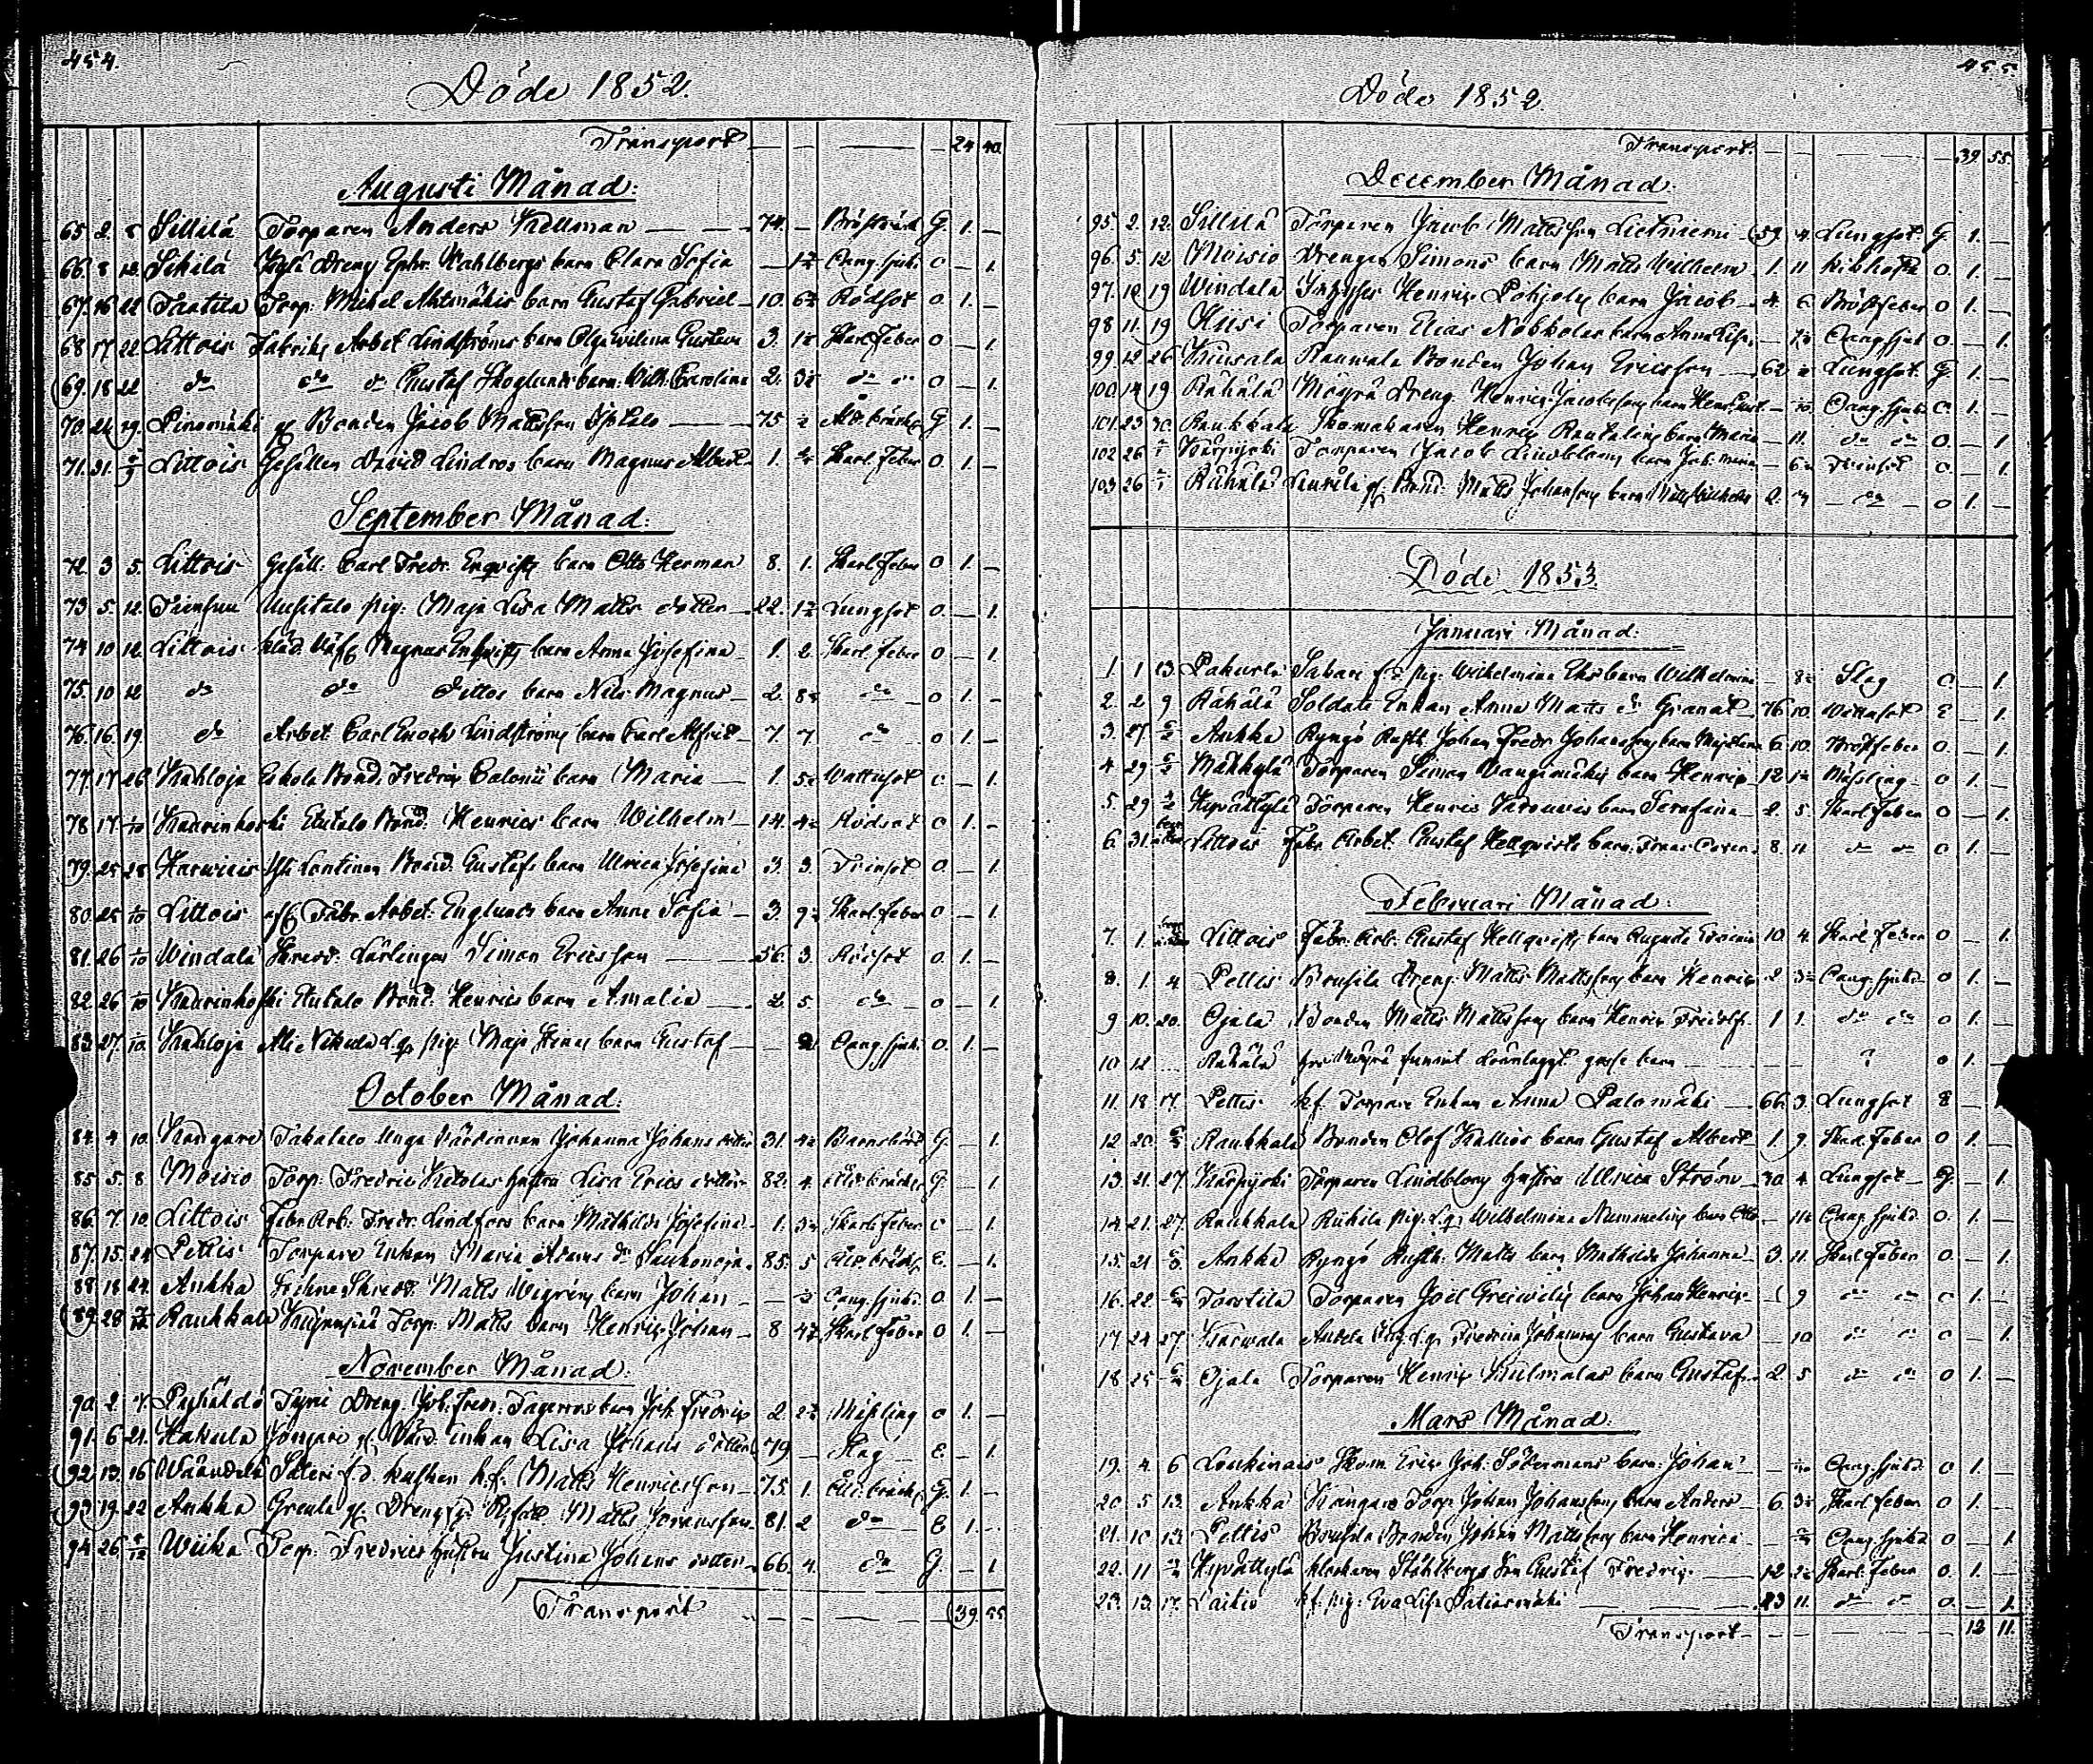 454.
Döde 1852.
Transport — — — — 24 40.
Augusti Månad:
65. 2. 8 Sillilä Torparen Anders Kellman — 74. — Bröstvärk G. 1. —
66. 8 12. Sikilä Kylä Dreng Ephr. Wahlbergs barn Clara Sofia — 1½ Oang. sjuk. O — 1.
67. 16 22 Taatila Torp. Michel Ahtmäkis barn Gustaf Gabriel — 10. 6½ Rödsot O. 1. —
68 17 22. Littois Fabriks Arbet Lindströms barn Olga Wilina Gustava 3. 1½ Skarl. Feber O — 1.
69. 18 22 do do do Gustaf Skoglunds barn Wilh. Carolina 2. 3½ do do O — 1.
70. 24 29. Pinomäki gf Bonden Jacob Mattsson — 75 ½ Åld. bräckl. G 1. —
71. 31. 5/9 Littois Gesällen David Lindros barn Magnus Albert 1. Skarl. Feber O. 1. —
September Månad:
72. 3 5. Littois Gesäll. Carl Fredr. Enqvists barn Otto Herman 8. 1. Skarl. Feber O 1. —
73 5. 12. Uusitalo pig. Maja Lisa Matts dotter 22. 1½ Lungsot O. — 1.
74 10 12. Littois Magnus Enqvists barn Anna Josefina 1. 2 Skarl. Feber O — 1.
75. 10 12 do do Dittos barn Nils Magnus 2. 8½ do O 1. —
76. 16. 19 do Arbet. Carl Enoch Lindströms barn Carl Alfred 7. 7 do O 1. —
77. 17 26 Kahloja Eskola Bond. Fredric Calonii barn Maria — 1. 5½ Wattusot O — 1.
78 17 Kaarinkoski Eutalo Bond. Henrics barn Wilhelm 14. 4½ Rödsot O 1. —
79. 25 28 Lentinen Bond. Gustafs barn Ulrica Josefina 3. 3. Trinsot O — 1.
80. 25 1/10 Littois Fabr. Arbet. Englunds barn Anna Sofia 3. 9½ Skarl. Feber O — 1.
81. 26 1/10 Windala Skredd. Lärlingen Simon Ericsson — 56. 3. Rödsot O. 1. —
82. 26 1/10 Kaarinkoski Eutalo Bond. Henrics barn Amalia — 2. 5 do O — 1.
83. 27 1/10 Kahloja Ali Nikula L.q. pig. Maja Stinas barn Gustaf — Oang. sjuk. O. 1. —
October Månad:
84. 4 10. Kangare Takatalo Unga Värdinnan Johanna Johans dotter 31. 4½ Barnsbörd G. — 1.
85 5. 8 Moisio Torp. Fredric Ketolas hustru Lisa Erics dotter 82. 4. Åld. bräckl. G. — 1.
86. 7. 10. Littois Fabr. Arb. Fredr. Lindfors barn Mathilda Josefina 1. 3½ Skarl. Feber O — 1.
87. 15. 24 Pettis Torpare Enkan Maria Adams dr 85. 5 Åld. bräckl. E. — 1.
88 18 24. Ankka Skredd. Matts Wigrens barn Johan — ½ Oang. sjuk. O 1. —
89. 28 Raukkala Torp. Matts barn Henric Johan 8 4½ Skarl. Feber O 1. —
November Månad:
90. 2. 7. Dreng. Joh. Fredr. Fagerros barn Joh. Fredric 2. 2½ Mässling O 1. —
91. 6 21. Hakula Enkan Lisa Johans dotter 79 — Slag E — 1.
92. 13. 16 Säteri f.d. kusken h.f. Matts Henricsson 75. 1. Åld. bräckl. G. 1. —
93. 19. 22 Ankka Greula Matts Johansson 81. 2 do E 1. —
94. 26. 5/12 Wiika Torp. Fredrics hustru Justina Johans dotter 66. 4. do G. — 1
Transport — — — — 39. 55
455.
Döde 1852.
Transport. — — — — 39 55.
December Månad:
95. 2. 12. Sillilä Torparen Jacob Mattsson Lietniemi 59. 4. Lungsot G. 1. —
96. 5. 12 Moisio Drengen Simons barn Matts Wilhelm 1. 11 Kikhosta O. 1. —
97. 10 19 Windala Inhyses Henric Pohjolas barn Jacob 4. 6 Bröstfeber O 1. —
98 11. 19 Hiisi Torparen Elias Nobkolas barn Anna Lisa — Oang. sjuk O. — 1.
99. 12 26 Kuusala Rauwala Bonden Johan Ericsson — 62 Lungsot G. 1. —
100. 14 19 Rähälä Mäyrä Dreng. Henric Jacobssons barn Henr. Gust. — Oang. sjuk. O. 1. —
101. 23 30. Raukkala Skomakaren Henric Rautelins barn Maria — 11. do do O. — 1
102 26 Kärpijoki Torparen Jacob Lindbloms barn — 6½ Trinsot O — 1.
103. 26 Rähälä Laurila gf. Bond. Matts Johanssons barn Matts Wilhelm 2. — do — O 1. —
Döde 1853.
Januari Månad:
1. 1 13. Pakurla Sabari pig. Wilhelmina Eks barn Wilhelmina — 8½ Slag O. — 1.
2. 2 9 Rähälä Soldats Enkan Anna Matts dr Granat 76 10. Wattusot E — 1.
3. 27 6/2 Ankka Ryngö Rusth. Johan Fredr. Johanssons barn 6. 10. Bröstfeber O. — 1.
4 29 6/2 Mäkkylä Torparen Simon Vanginmäkis barn Henric 12 1½ Mässling O 1. —
5. 29 Hepättylä Torparen Henric barn Serafina 2. 5. Skarl. Feber O — 1.
6. 31. Littois Fabr. Arbet. Gustaf Hellqvists barn Frans Oscar 8. 11 do do O 1. —
Februari Månad:
7. 1. Littois Fabr. Arb. Gustaf Hellqvists barn Augusta 10 4. Skarl. Feber O — 1.
8. 1. 4 Pettis Brusila Dreng. Matts Mattssons barn Henric 2 3½ Oang. sjukd. O 1. —
9 10. 20. Ojala Bonden Matts Mattssons barn Henric Fridolf 1 1. do do O 1. —
10 12 Rähälä funnit lönnlagdt gosse barn — ? O 1. —
11. 13 17. Pettis h.f. Torpare Enkan Anna Palomäki — 66. 3. Lungsot E —
12 20. 6/3 Raukkala Bonden Olof Kallios barn Gustaf Albert 1 9. Skarl. Feber O 1. —
13. 21. 27 Kärpijoki Torparen Lindbloms hustru Ulrica Ström 30 4 Lungsot G. — 1
14. 21. 27. Raukkala Rukila pig. L.q. Wilhelmina Nummelins barn Otto — Oang. sjukd. O. 1. —
15. 21 6/3 Ankka Ryngö Rusth. Matts barn Mathilda Johanna 3 11. Skarl. Feber O. — 1.
16. 22 6/3 Tarstila Torparen Joel Greiwilis barn Johan Henric 1 9 do do O 1. —
17 24 27. Karwala Anttila pig. L.q. Fredrica Johanssons barn Gustava — 10 do do O — 1.
18. 25 Ojala Torparen Henric Kulmalas barn Gustaf 2 5 do do O 1. —
Mars Månad:
19. 4 6 Loukinais Skom. Eric Joh. Södermans barn Johan — Oang. sjukd. O 1. —
20. 5 13. Ankka Kangars Torp. Johan Johanssons barn Anders 6. 3½ Skarl. Feber O 1. —
21. 10 13. Pettis Brusila Bonden Johan Mattssons barn Henrica — Oang. sjukd. O — 1
22. 11 Hepättylä Klockaren Ståhlbergs Son Gustaf Fredric — 12 2½ Skarl. Feber O. 1. —
23. 13. 17. Laitio h.f. pig. Eva Lisa Satiarmäki — 23 11. do do O. — 1.
Transport — — — — 12 11.